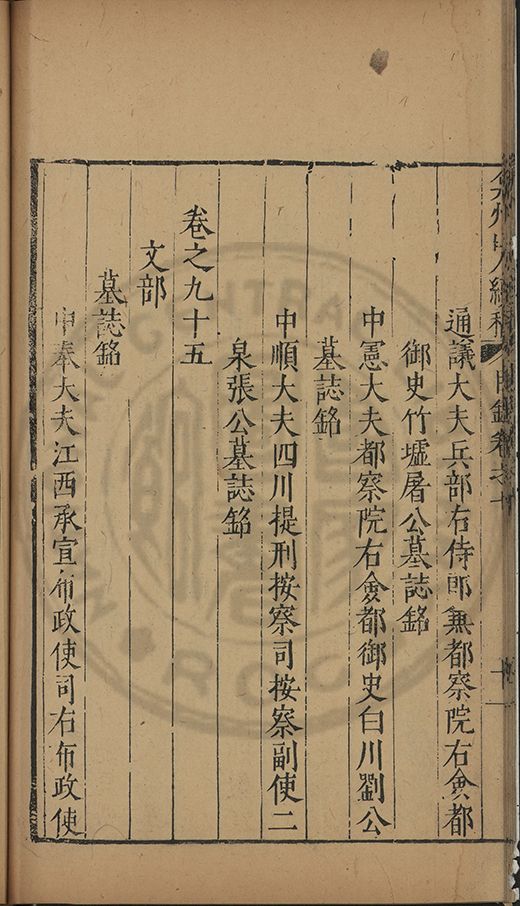 弇州山人續稿 目錄卷之十
通議大夫兵部右侍郎兼都察院右僉都
御史竹墟屠公墓誌銘
中憲大夫都察院右僉都御史白川劉公
墓誌銘
中順大夫四川提刑按察司按察副使二
泉張公墓誌銘
卷之九十五
文部
墓誌銘
中奉大夫江西承宣布政使司右布政使